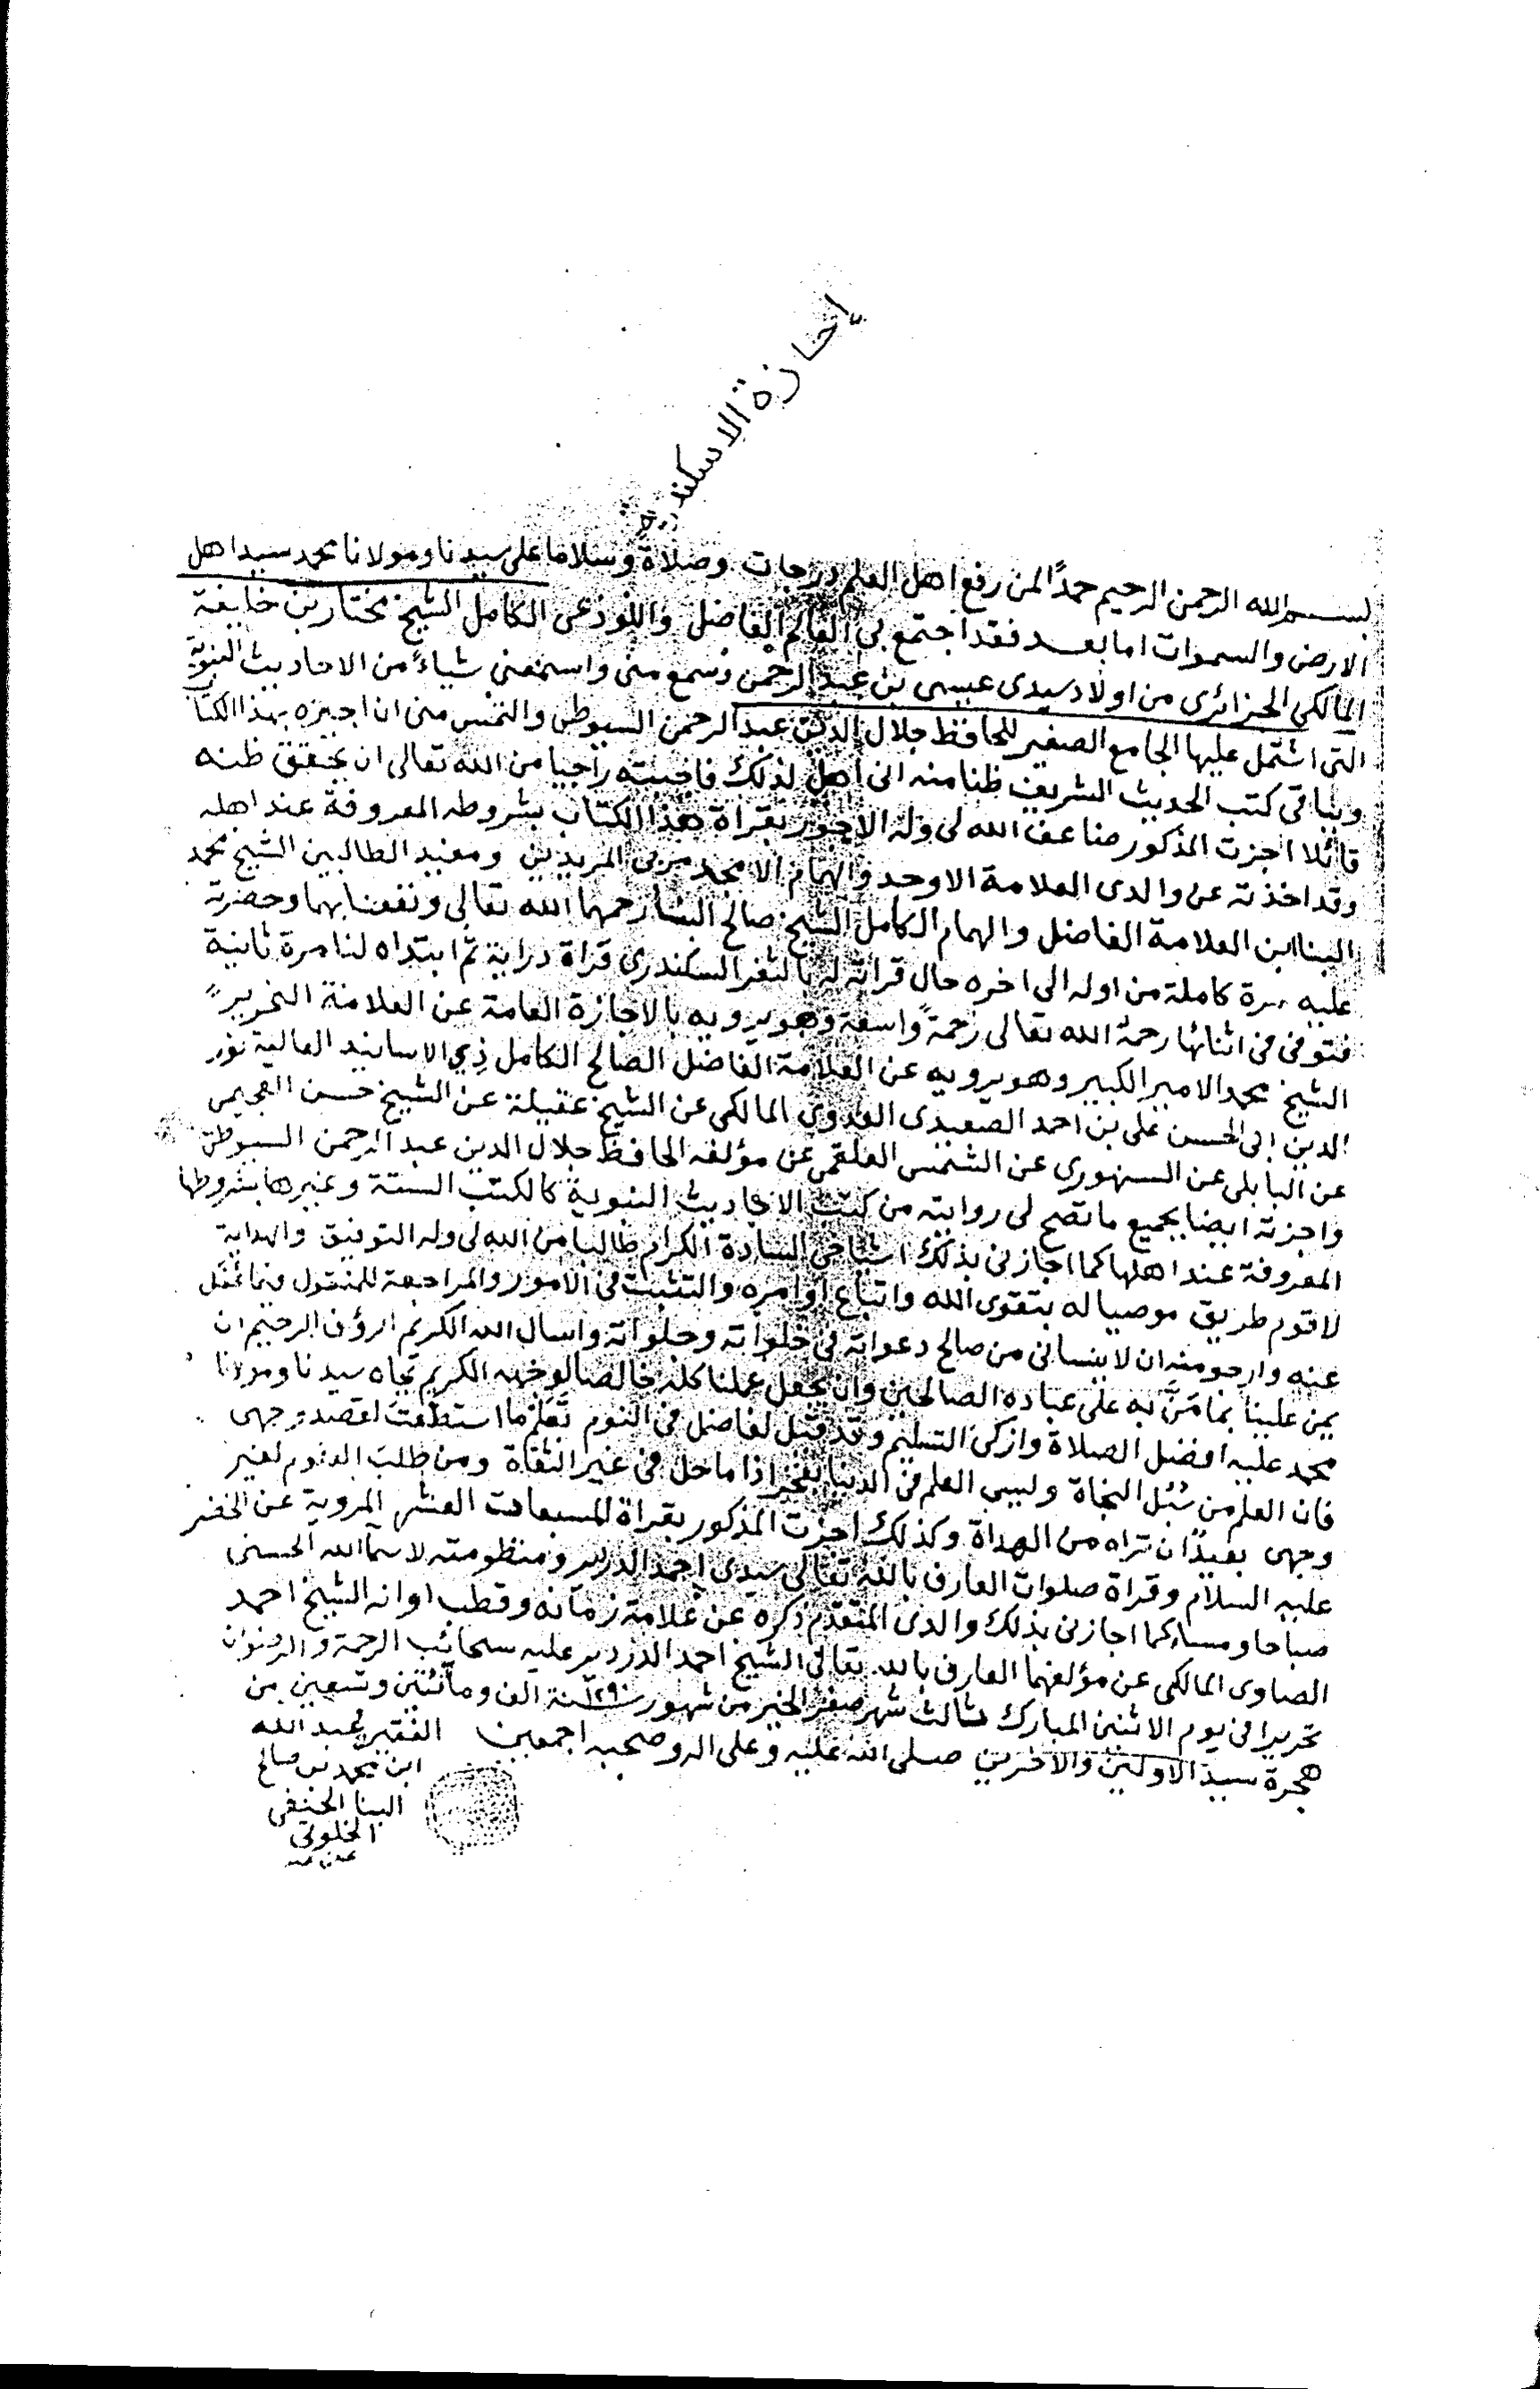 إجازة الاسكندرية
بسم الله الرحمن الرحيم حمدًا لمن رفع اهل العلم درجات وصلاة وسلاما على سيدنا ومولانا محمد سيد اهل
الارض والسموات اما بعد فقد اجتمع بى العالم الفاضل واللوذعى الكامل الشيخ مختار بن خليفة
المالكي الجزائرى من اولاد سيدى عيسى بن عبد الرحمن وسمع منى واسمعنى شياءً من الاحاديث النبوية
التى اشتمل عليها الجامع الصغير للحافظ جلال الدين عبد الرحمن السيوطى والتمس منى ان اجيزه بهذا الكتاب
وبباقى كتب الحديث الشريف ظنا منه انى اهل لذلك فاجبته راجيا من الله تعالى ان يحقق ظنه
قائلا اجزت المذكور ضاعف الله لى وله الاجور بقراة هذا الكتاب بشروطه المعروفة عند اهله
وقد اخذته عن والدى العلامة الاوحد والهمام الامجد مربى المريدين ومفيد الطالبين الشيخ محمد
البنا ابن العلامة الفاضل والهمام الكامل الشيخ صالح البنا رحمهما الله تعالى ونفعنا بهما وحضرته
عليه مرة كاملة من اوله الى اخره حال قراته له بالثغر السكندرى قراة دراية ثم ابتداه لنا مرة ثانية
فتوفى فى اثنائها رحمه الله تعالى رحمةً واسعة وهو يرويه بالاجازة العامة عن العلامة النحرير
الشيخ محمد الامير الكبير وهو يرويه عن العلامة الفاضل الصالح الكامل ذي الاسانيد العالية نور
الدين ابى الحسن على بن احمد الصعيدى العدوى المالكى عن الشيخ عقيلة عن الشيخ حسن العجيمى
عن البابلى عن السنهورى عن الشمس العلقمى عن مؤلفه الحافظ جلال الدين عبد الرحمن السيوطى
واجزته ايضا بجميع ما تصح لى روايته من كتب الاحاديث النبوية كالكتب الستة وغيرها بشروطها
المعروفة عند اهلها كما اجازنى بذلك اشياخى السادة الكرام طالبا من الله لى وله التوفيق والهداية
لاقوم طريق موصيا له بتقوى الله واتباع اوامره والتثبت فى الامور والمراجعة للمنقول فيما غفل
عنه وارجو منه ان لا ينسانى من صالح دعواته فى خلواته وجلواته واسال الله الكريم الرؤف الرحيم ان
يمن علينا بما مَنَّ به على عباده الصالحين وان يجعل عملنا كله خالصا لوجهه الكريم بجاه سيدنا ومولانا
محمد عليه افضل الصلاة وازكى التسليم وقد قيل لفاضل فى النوم تعلم ما استطعت لقصد وجهى
فان العلم من سُبُل النجاة وليس العلم فى الدنيا بفخر اذا ما حل فى غير الثقاة ومن طلب العلوم لغير
وجهى بعيدًا ان تراه من الهداة وكذلك اجزت المذكور بقراة المسبعات العشر المروية عن الخضر
عليه السلام وقراة صلوات العارف بالله تعالى سيدى احمد الدردير ومنظومته لاسماالله الحسنى
صباحا ومساء كما اجازنى بذلك والدى المتقدم ذكره عن علامة زمانه وقطب اوانه الشيخ احمد
الصاوى المالكى عن مؤلفهما العارف بالله تعالى الشيخ احمد الدردير عليه سحائب الرحمة والرضوان
تحريرا فى يوم الاثنين المبارك ثالث شهر صفر الخير من شهور سنة ١٢٩٠ الف ومائتين وتسعين من
هجرة سيد الاولين والاخرين صلى الله عليه وعلى اله وصحبه اجمعين الفقير عبد الله
ابن محمد بن صالح
البنا الحنفى
الخلوتى
عفى عنه